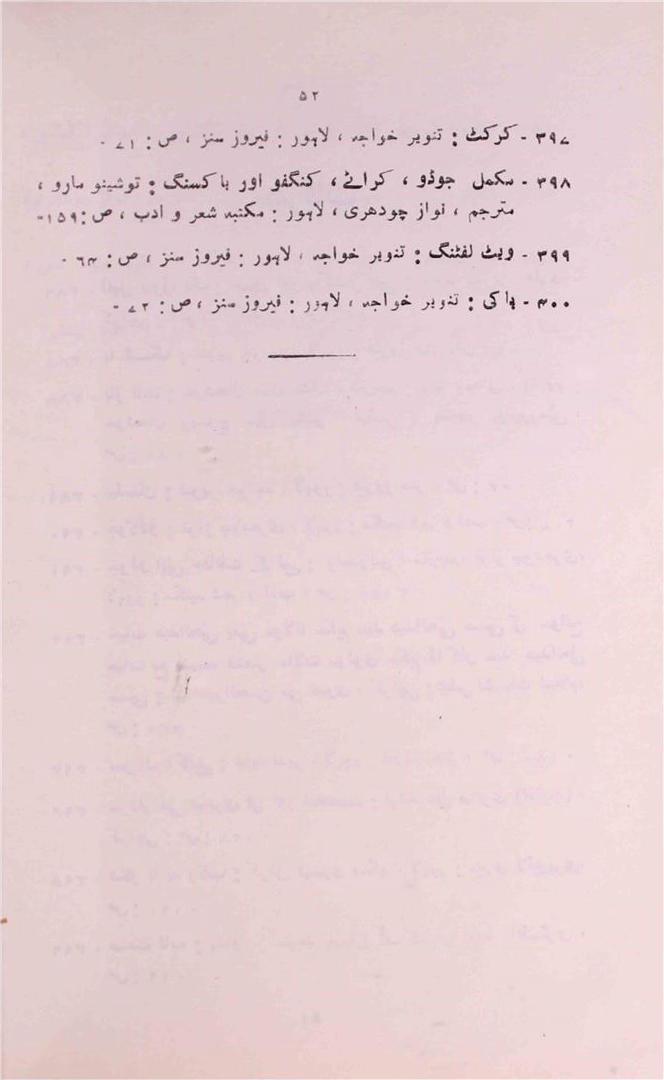 ۵۲
۳۹۷ - کرکٹ : تنویر خواجہ ، لاہور : فیروز سنز ، ص : ۷۱ -
۳۹۸ - مکمل جوڈو ، کراٹے ، کنگفو اور باکسنگ : توشینو مارو ،
مترجم ، نواز چودھری ، لاہور : مکتبہ شعر و ادب ، ص : ۱۵۹-
۳۹۹ - ویٹ لفٹنگ : تنویر خواجہ ، لاہور : فیروز سنز ، ص : ۶۴ -
۴۰۰ - ہاکی : تنویر خواجہ ، لاہور : فیروز سنز ، ص : ۷۲ -